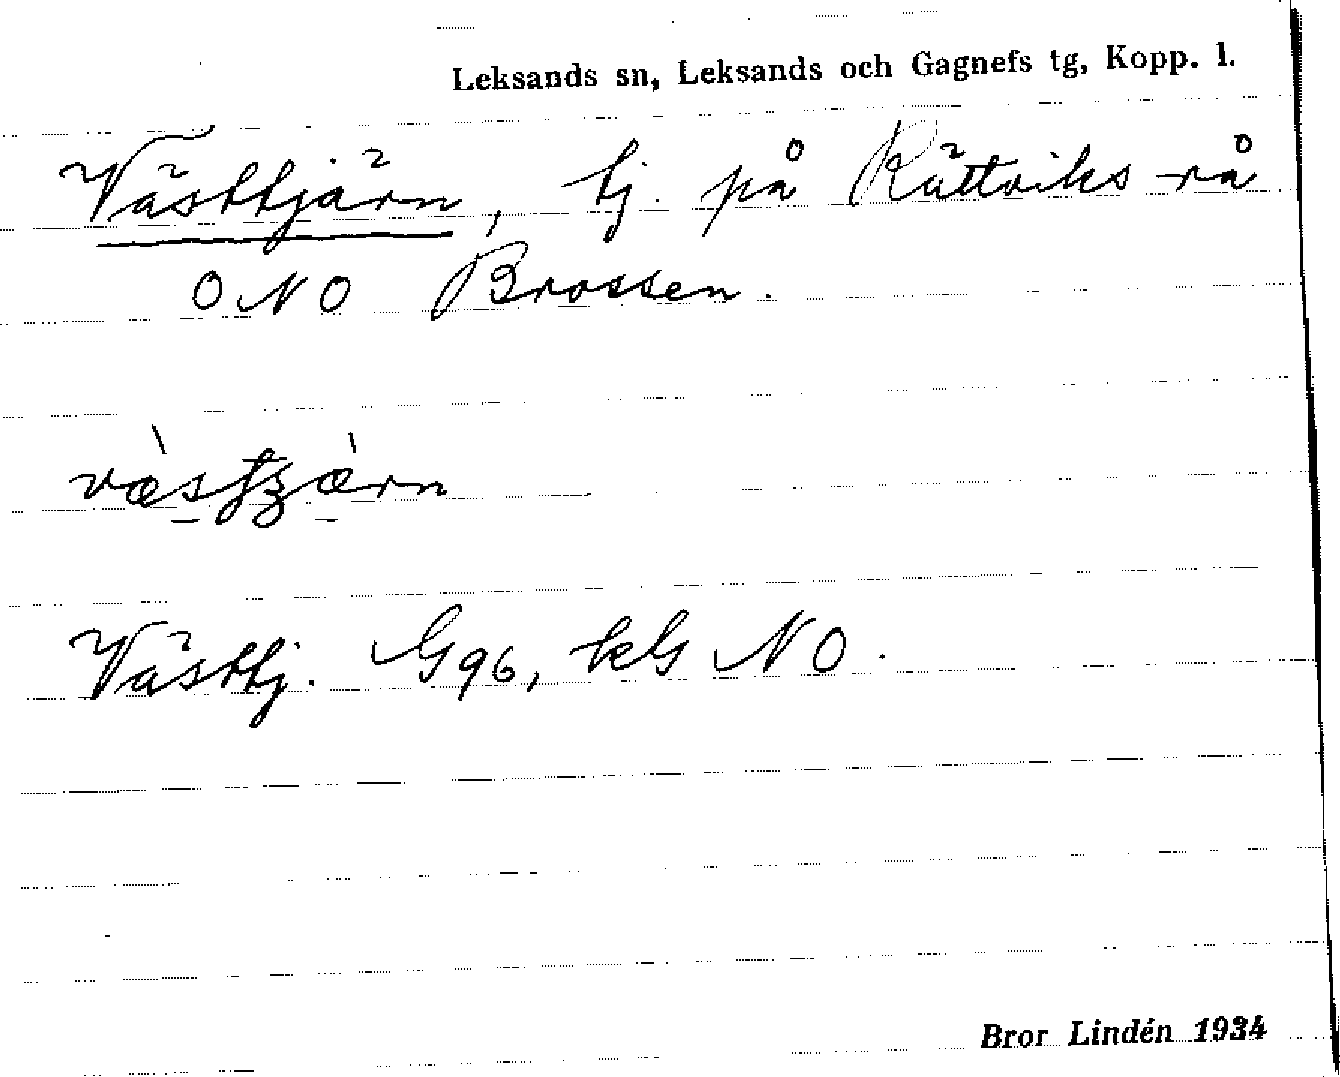 Leksands sn, Leksands och Gagnefs tg, Kopp. l.
Västtjärn, tj. på Rättviks-rå
ONO Brossen.
Västtj. G96, kG NO.
Bror Lindén 1934